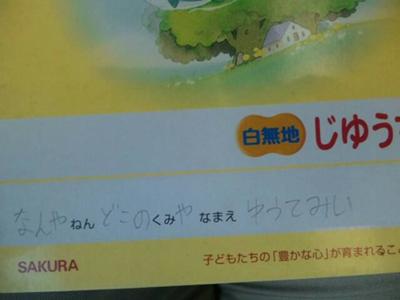 白無地 じゆう
なんやねん どこのくみや なまえ ゆうてみい
SAKURA 子どもたちの「豊かな心」が育まれるこ